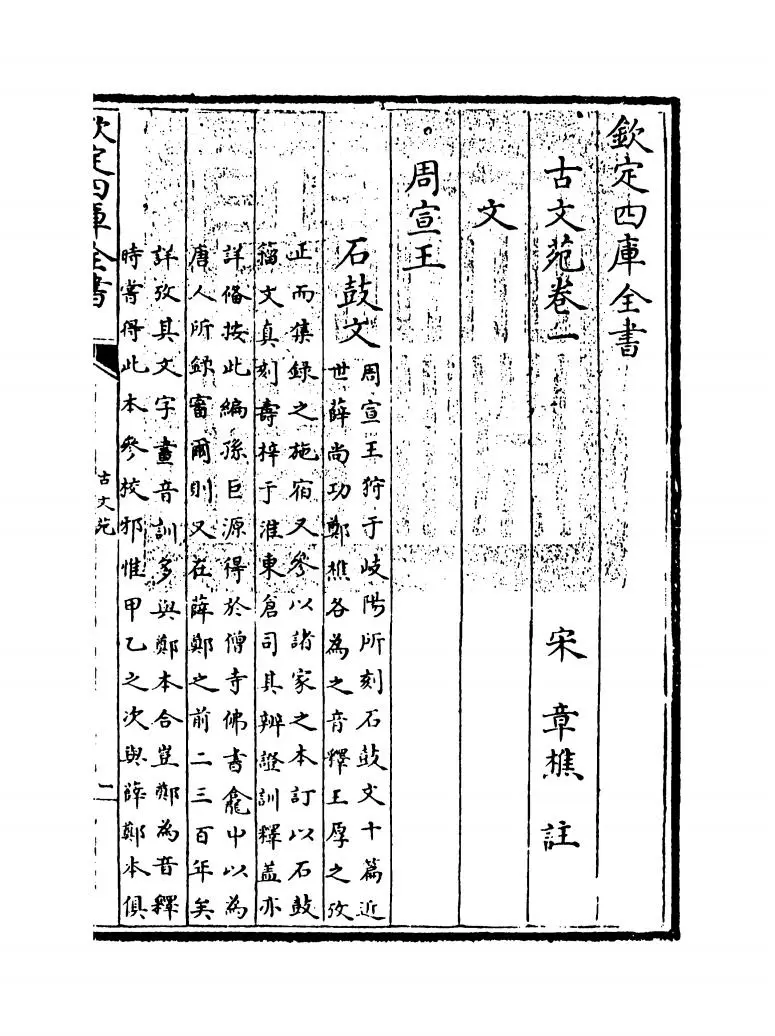 欽定四庫全書
古文苑卷一
宋 章樵 註
文
周宣王
石鼓文
周宣王狩于岐陽所刻石鼓文十篇近
世薛尚功鄭樵各為之音釋王厚之攷
正而集錄之施宿又參以諸家之本訂以石鼓
籀文真刻壽梓于淮東倉司其辨證訓釋盖亦
詳備按此編孫巨源得於僧寺佛書龕中以為
唐人所錄審爾則又在薛鄭之前二三百年矣
詳攷其文字畫音訓多與鄭本合豈鄭為音釋
時嘗得此本參校邪惟甲乙之次與薛鄭本俱
欽定四庫全書
古文苑